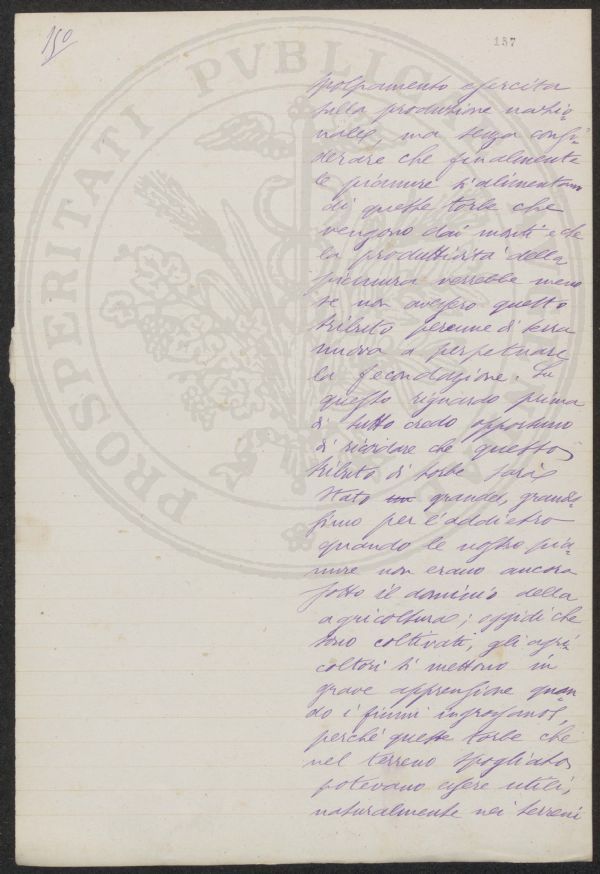 150
157
PROSPERITATI PUBLICÆ
spolpamento esercita
sulla produzione nazio-
nale, ma senza consi-
derare che finalmente
le pianure si alimentano
di queste torbe che
vengono dai monti e che
la produttività della
pianura verrebbe meno
se non avessero questo
tributo perenne di terra
nuova a perpetuare
la fecondazione. In
questo riguardo prima
di tutto credo opportuno
di ricordare che questo
tributo di torbe sarà
stato un grande, grandis-
simo per l'addietro
quando le nostre pia-
nure non erano ancora
sotto il dominio della
agricoltura; oggidì che
sono coltivati, gli agri-
coltori si mettono in
grave apprensione quan-
do i fiumi ingrossano,
perché queste torbe che
nel terreno spogliato
potevano essere utili,
naturalmente nei terreni